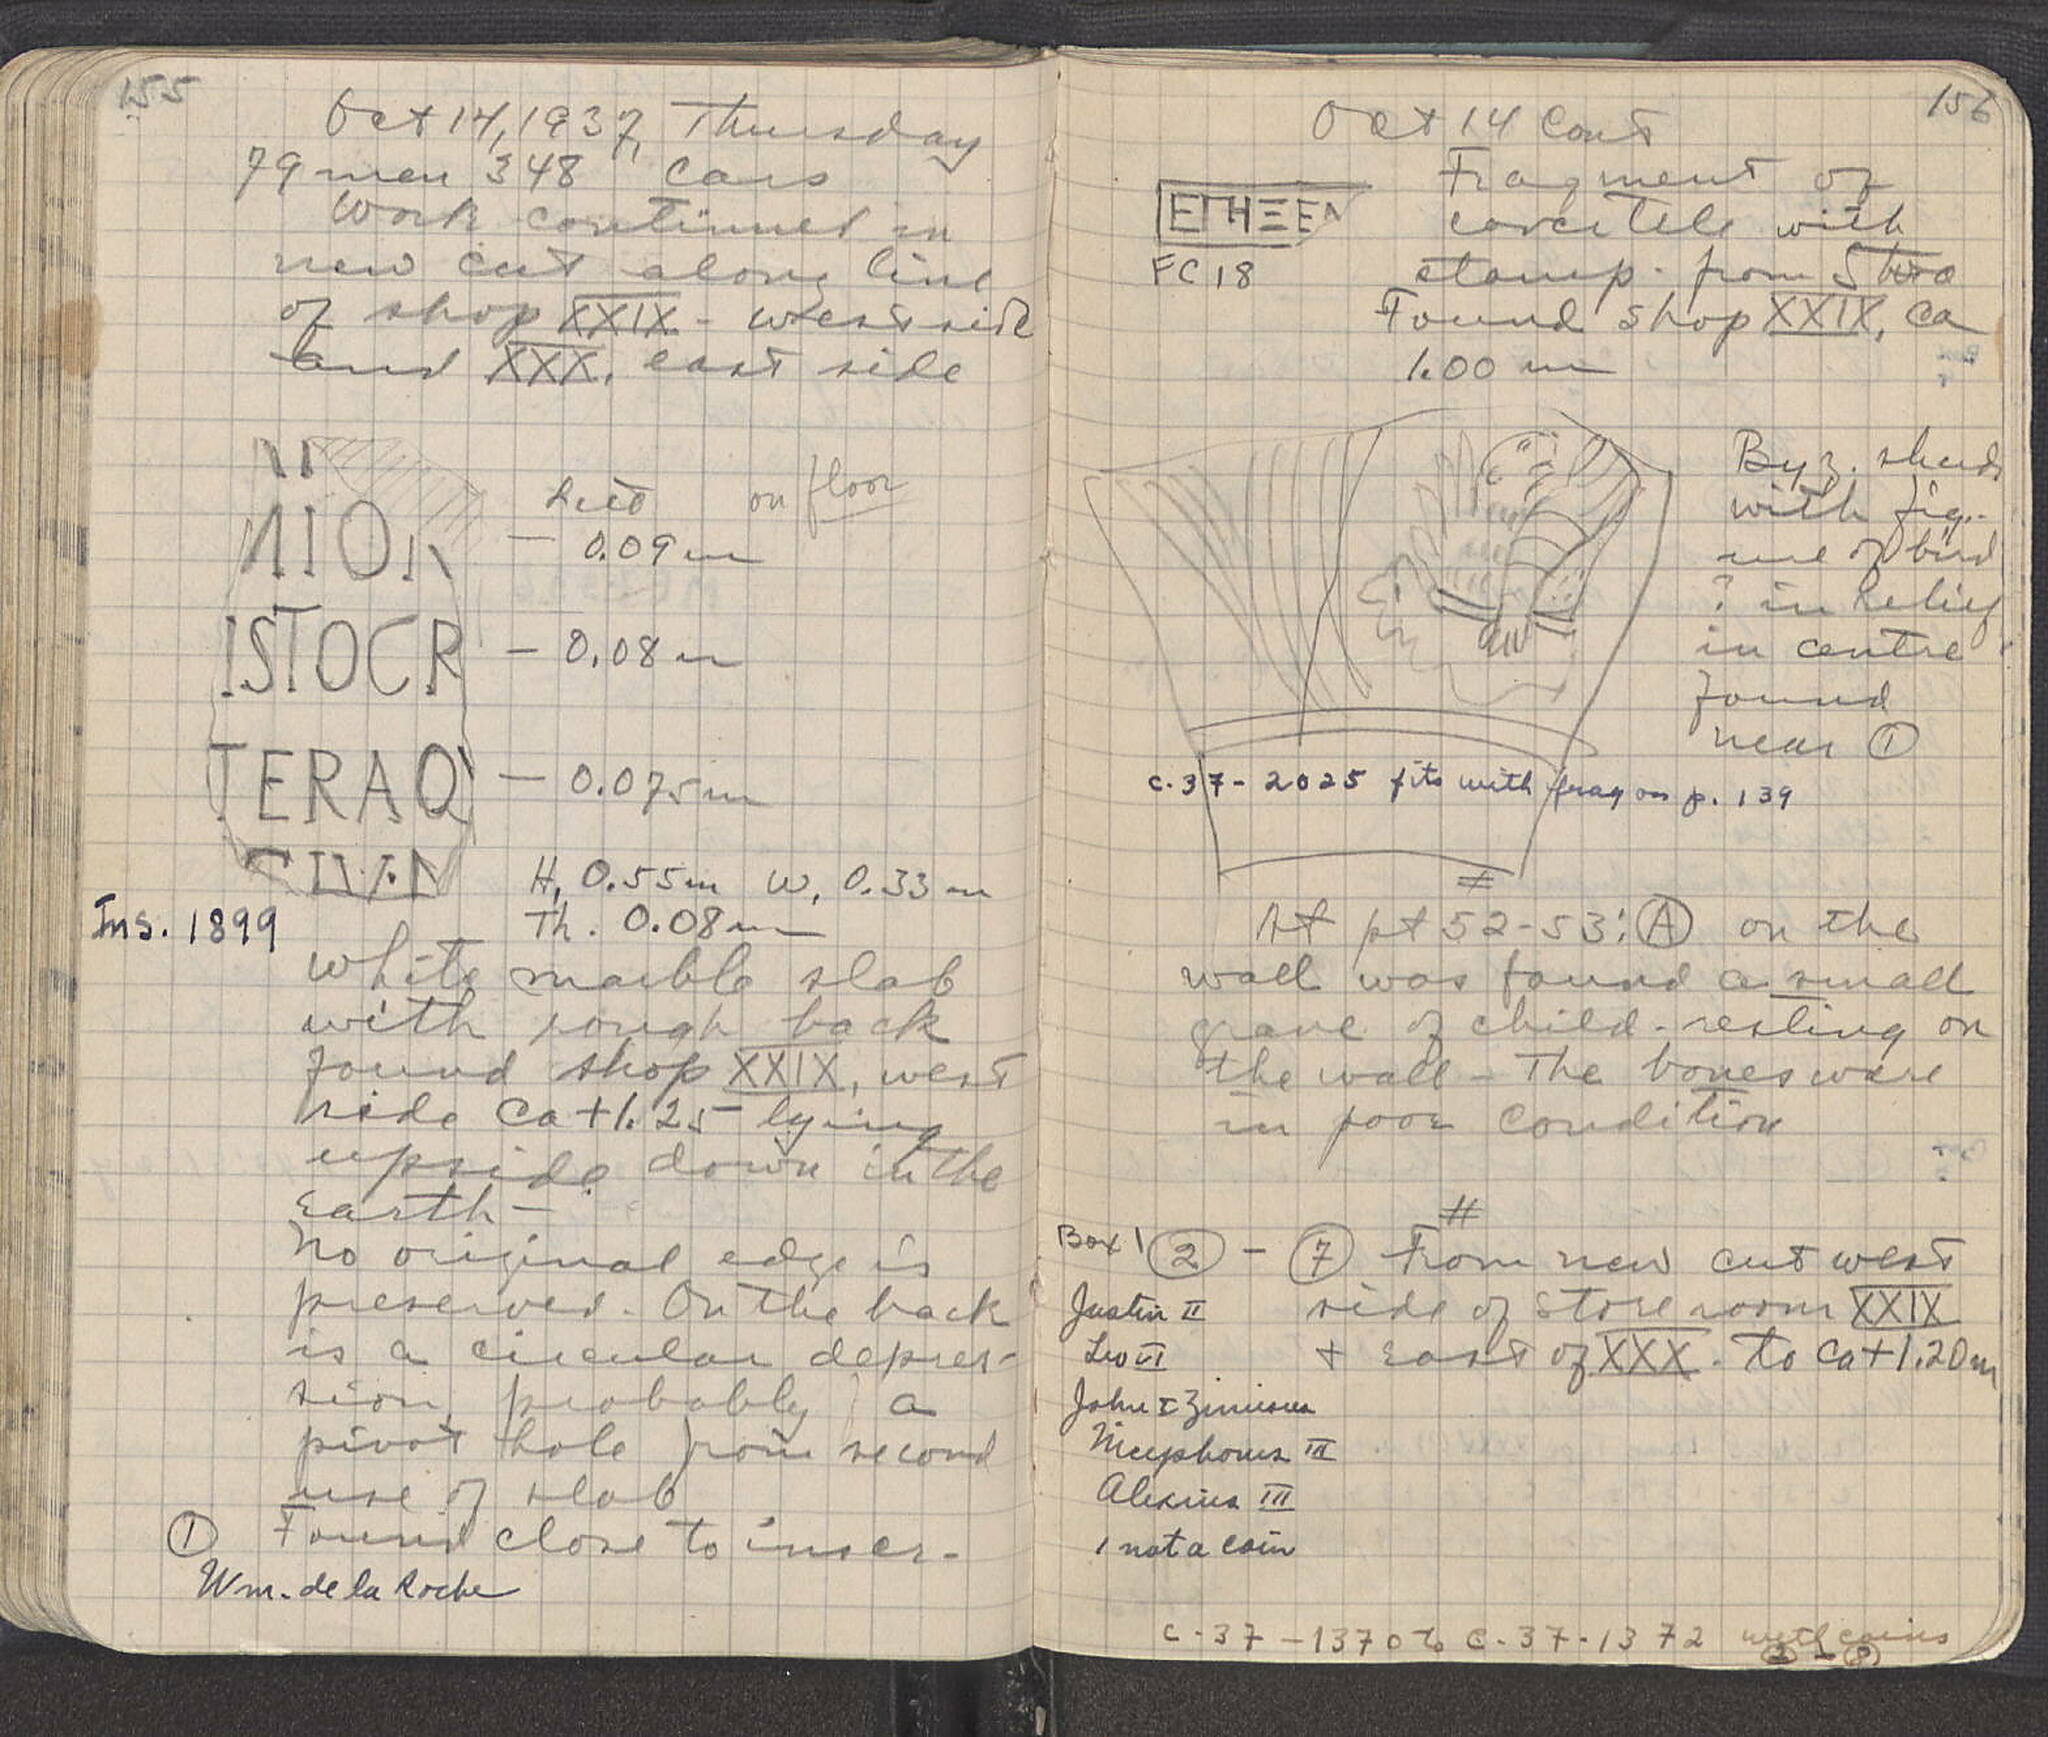 155
Oct 14, 1937, Thursday
79 men 348 cars
Work continued in
new cut along line
of shop XXIX - west side
and XXX, east side
on floor
NIOR
- 0.09 m
ISTOCR
- 0.08 m
TERAQ
- 0.075 m
H, 0.55m W, 0.33 m
Ins. 1899
Th. 0.08 m
White marble slab
with rough back
found shop XXIX, west
side ca +1.25 lying
upside down in the
earth -
No original edge is
preserved. On the back
is a circular depres-
sion, probably a
pivot hole from second
use of slab
① Found close to inscr-
Wm. de la Roche
156
Oct 14 Cont
Fragment of
ETHΞE
tile with
stamp. from
FC 18
Found shop XXIX, ca
1.00 m
Byz. sherds
with fig-
ure of bird
? in relief
in centre
found
near ①
C.37-2025 fits with frag on p. 139
At pt 52-53:Ⓐ on the
wall was found a small
grave of child - resting on
the wall - The bones were
in poor condition
Box 1 ② - ⑦ From new cut west
Justin II side of storeroom XXIX
Leo VI + east of XXX. To ca +1.20m
John I Zimisces
Nicephorus III
Alexius III
1 not a coin
C-37-1370 to C-37-1372 with coins
② - ⑧